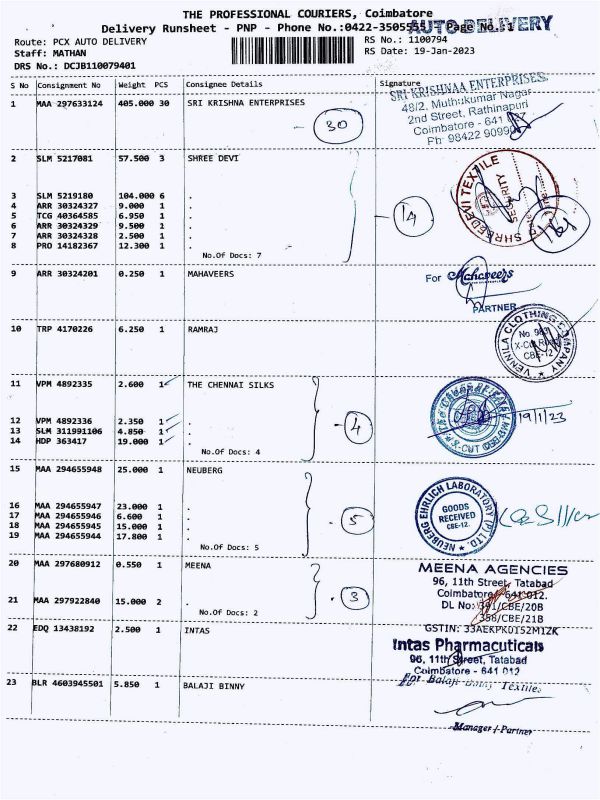 THE PROFESSIONAL COURIERS, Coimbatore
Delivery Runsheet - PNP - Phone No.:0422-3505555 - Page No.:1
AUTO DELIVERY
Route: PCX AUTO DELIVERY
RS No.: 1100794
Staff: MATHAN
RS Date: 19-Jan-2023
DRS No.: DCJB110079401
S No Consignment No Weight PCS Consignee Details Signature
1 MAA 297633124 405.000 30 SRI KRISHNA ENTERPRISES
30
SRI KRISHNAA ENTERPRISES,
48/2, Muthukumar Nagar
2nd Street, Rathinapuri
Coimbatore - 641
Ph: 98422
2 SLM 5217081 57.500 3 SHREE DEVI
3 SLM 5219180 104.000 6 .
4 ARR 30324327 9.000 1 .
5 TCG 40364585 6.950 1 .
6 ARR 30324329 9.500 1 .
7 ARR 30324328 2.500 1 .
8 PRO 14182367 12.300 1 .
No.Of Docs: 7
14
SHREEDEVI TEXTILE
SECURITY
9 ARR 30324201 0.250 1 MAHAVEERS
For Mahaveers
PARTNER
10 TRP 4170226 6.250 1 RAMRAJ
VENNILA CLOTHING COMPANY
X-Cut Road
CBE-12
11 VPM 4892335 2.600 1 THE CHENNAI SILKS
12 VPM 4892336 2.350 1 .
13 SLM 311991106 4.850 1 .
14 HDP 363417 19.000 1 .
No.Of Docs: 4
4
X-CUT
19/1/23
15 MAA 294655948 25.000 1 NEUBERG
16 MAA 294655947 23.000 1 .
17 MAA 294655946 6.600 1 .
18 MAA 294655945 15.000 1 .
19 MAA 294655944 17.800 1 .
No.Of Docs: 5
5
NEUBERG EHRLICH LABORATORY (P) LTD.
GOODS
RECEIVED
CBE-12.
20 MAA 297680912 0.550 1 MEENA
21 MAA 297922840 15.000 2 .
No.Of Docs: 2
3
MEENA AGENCIES
96, 11th Street, Tatabad
Coimbatore - 641 012.
DL No: 391/CBE/20B
358/CBE/21B
GSTIN: 33AEKPK0152M1ZK
22 EDQ 13438192 2.500 1 INTAS
Intas Pharmacuticals
96, 11th Street, Tatabad
Coimbatore - 641 012
23 BLR 4603945501 5.850 1 BALAJI BINNY
For Balaji Binny Textiles
Manager / Partner